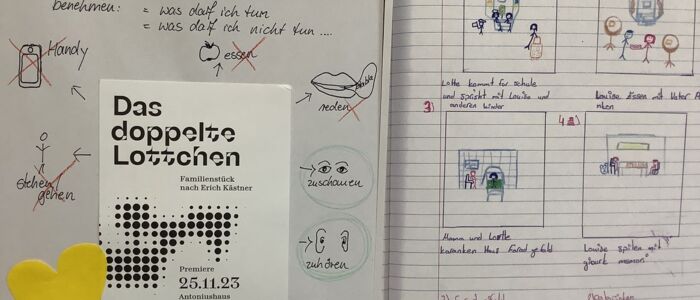 benehmen: = was darf ich tun
= was darf ich nicht tun ....
Handy
essen
reden
stehen
gehen
zuschauen
zuhören
Das
doppelte
Lottchen
Familienstück
nach Erich Kästner
Premiere
25.11.23
Antoniushaus
Lotte kommt fur schule
und spricht mit Louise und
anderen kinder
Louise Essen mit Vater
3)
4)
Mama und Lootte
Haus
Louise spilen mit